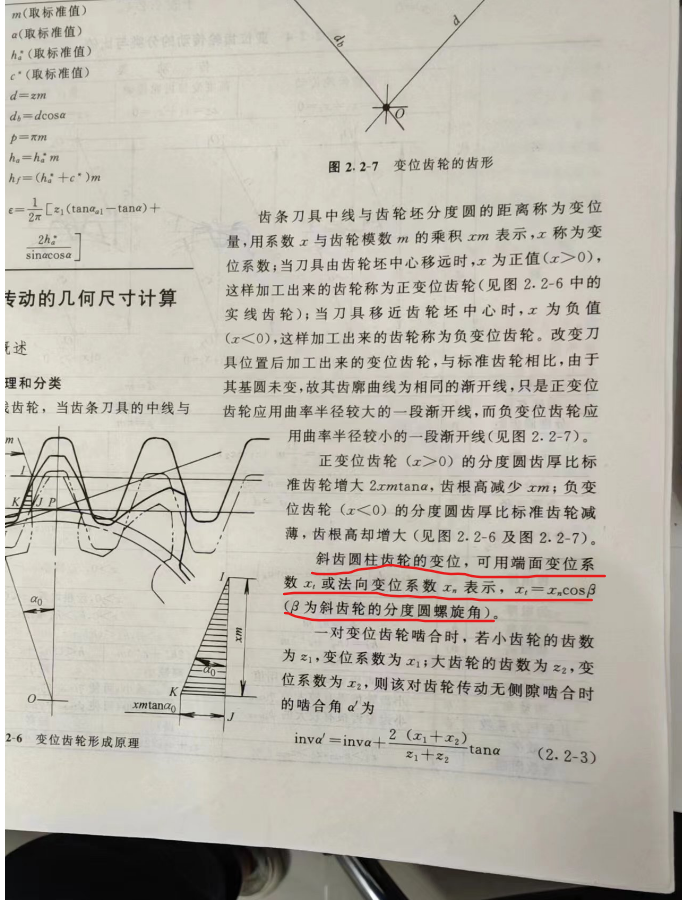 m(取标准值)
α(取标准值)
hₐ*(取标准值)
c*(取标准值)
d=zm
d_b=dcosα
p=πm
hₐ=hₐ*m
h_f=(hₐ*+c*)m
ε=1/2π[z₁(tanαₐ₁−tanα)+
2hₐ*/sinαcosα]
传动的几何尺寸计算
概述
理和分类
齿轮，当齿条刀具的中线与
m
I
K J P
α₀
O
I
xm
α₀
K
xmtanα₀
J
2-6 变位齿轮形成原理
d_b
d
O
图 2.2-7 变位齿轮的齿形
齿条刀具中线与齿轮坯分度圆的距离称为变位
量,用系数 x 与齿轮模数 m 的乘积 xm 表示,x 称为变
位系数;当刀具由齿轮坯中心移远时,x 为正值(x>0),
这样加工出来的齿轮称为正变位齿轮(见图 2.2-6 中的
实线齿轮);当刀具移近齿轮坯中心时,x 为负值
(x<0),这样加工出来的齿轮称为负变位齿轮。改变刀
具位置后加工出来的变位齿轮,与标准齿轮相比,由于
其基圆未变,故其齿廓曲线为相同的渐开线,只是正变位
齿轮应用曲率半径较大的一段渐开线,而负变位齿轮应
用曲率半径较小的一段渐开线(见图 2.2-7)。
正变位齿轮 (x>0) 的分度圆齿厚比标
准齿轮增大 2xmtanα, 齿根高减少 xm; 负变
位齿轮 (x<0) 的分度圆齿厚比标准齿轮减
薄, 齿根高却增大 (见图 2.2-6 及图 2.2-7)。
斜齿圆柱齿轮的变位，可用端面变位系
数 xₜ 或法向变位系数 xₙ 表示，xₜ=xₙcosβ
(β 为斜齿轮的分度圆螺旋角)。
一对变位齿轮啮合时，若小齿轮的齿数
为 z₁,变位系数为 x₁;大齿轮的齿数为 z₂,变
位系数为 x₂, 则该对齿轮传动无侧隙啮合时
的啮合角 α′为
invα′=invα+2 (x₁+x₂)/z₁+z₂ tanα (2.2-3)